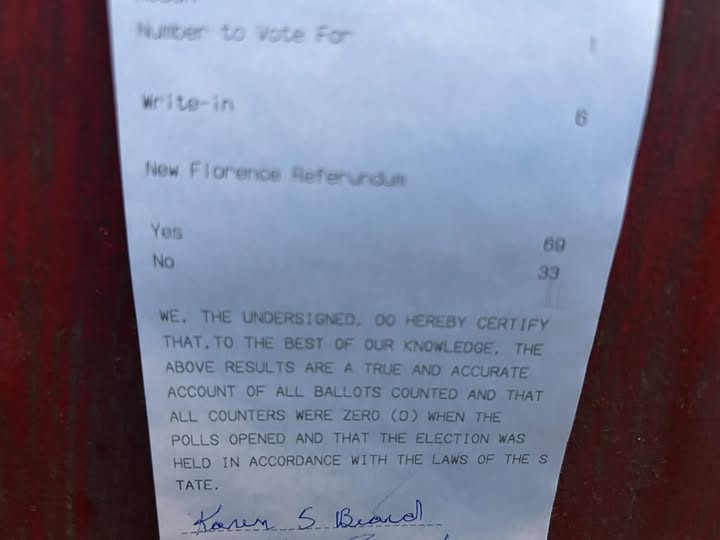 Number to Vote For 1
Write-in 6
New Florence Referundum
Yes 69
No 33
WE, THE UNDERSIGNED, DO HEREBY CERTIFY
THAT,TO THE BEST OF OUR KNOWLEDGE, THE
ABOVE RESULTS ARE A TRUE AND ACCURATE
ACCOUNT OF ALL BALLOTS COUNTED AND THAT
ALL COUNTERS WERE ZERO (0) WHEN THE
POLLS OPENED AND THAT THE ELECTION WAS
HELD IN ACCORDANCE WITH THE LAWS OF THE S
TATE.
Karen S Beard